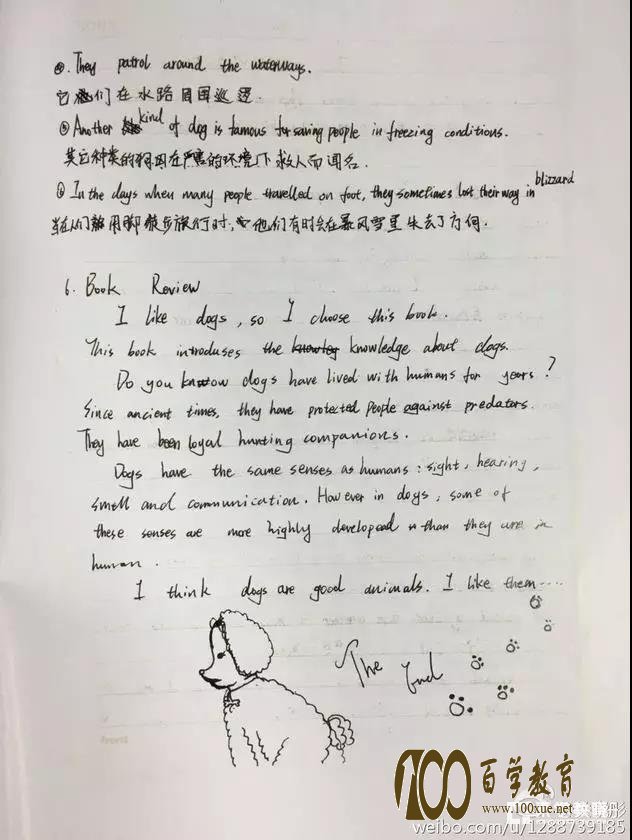 ④. They patrol around the waterways.
它们在水路周围巡逻.
⑤ Another kind of dog is famous for saving people in freezing conditions.
其它种类的狗因在严寒的环境下救人而闻名.
⑥ In the days when many people travelled on foot, they sometimes lost their way in blizzard
当在人们用脚徒步旅行时, 他们有时会在暴风雪里失去了方向.
6. Book Review
I like dogs, so I choose this book.
This book introduses the knowledge about dogs.
Do you know dogs have lived with humans for years?
Since ancient times, they have protected people against predators.
They have been loyal hunting companions.
Dogs have the same senses as humans: sight, hearing,
smell and communication. However in dogs, some of
these senses are more highly developed than they are in
human.
I think dogs are good animals. I like them……
The End
100百学教育
www.100xue.net
weibo.com/u/1288739185